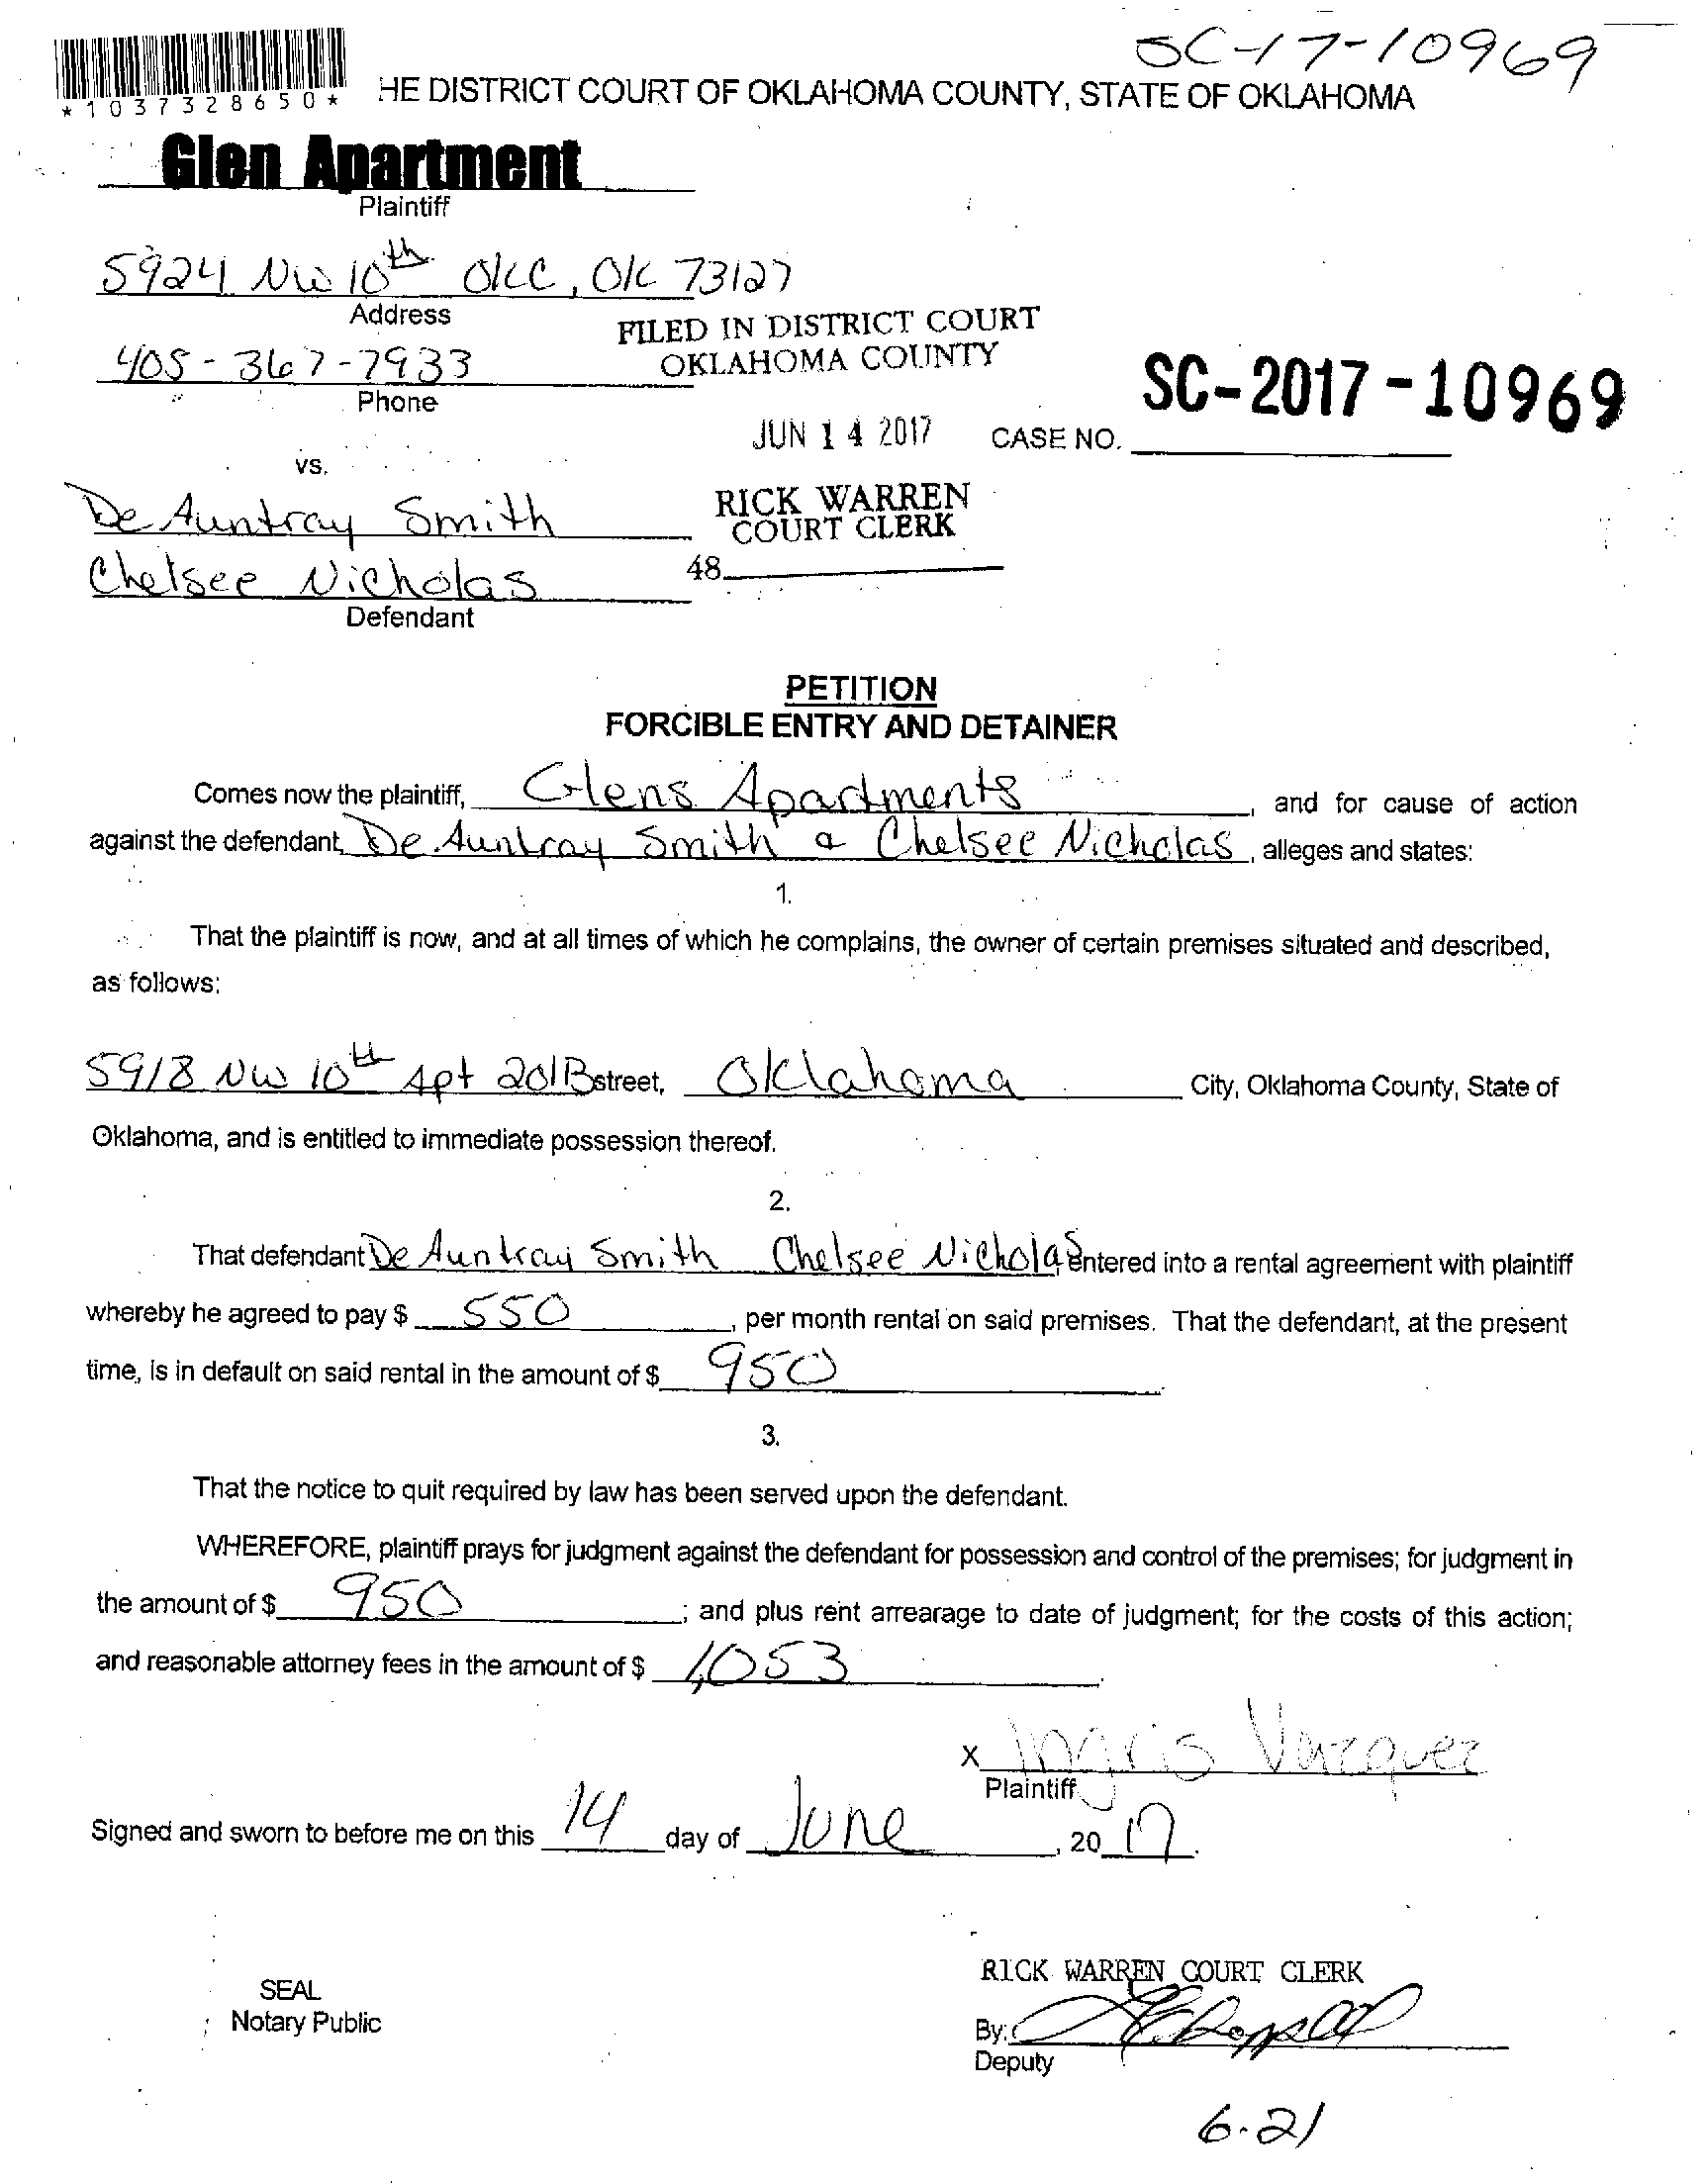 SC-17-10969
*1037328650*
HE DISTRICT COURT OF OKLAHOMA COUNTY, STATE OF OKLAHOMA
Glen Apartment
Plaintiff
5924 NW 10th OKC, OK 73127
Address
FILED IN DISTRICT COURT
OKLAHOMA COUNTY
405-367-7933
Phone
SC-2017-10969
JUN 14 2017
CASE NO.
vs.
De Auntray Smith
RICK WARREN
COURT CLERK
Chelsee Nicholas
48
Defendant
PETITION
FORCIBLE ENTRY AND DETAINER
Comes now the plaintiff, Glens Apartments, and for cause of action
against the defendant, De Auntray Smith & Chelsee Nicholas, alleges and states:
1.
That the plaintiff is now, and at all times of which he complains, the owner of certain premises situated and described,
as follows:
5918 NW 10th Apt 201B street, Oklahoma City, Oklahoma County, State of
Oklahoma, and is entitled to immediate possession thereof.
2.
That defendant De Auntray Smith Chelsee Nicholas entered into a rental agreement with plaintiff
whereby he agreed to pay $ 550, per month rental on said premises. That the defendant, at the present
time, is in default on said rental in the amount of $ 950.
3.
That the notice to quit required by law has been served upon the defendant.
WHEREFORE, plaintiff prays for judgment against the defendant for possession and control of the premises; for judgment in
the amount of $ 950; and plus rent arrearage to date of judgment; for the costs of this action;
and reasonable attorney fees in the amount of $ 1,053.
x Ingris Vazquez
Plaintiff
Signed and sworn to before me on this 14 day of June, 2017.
RICK WARREN COURT CLERK
SEAL
Notary Public
By:
Deputy
6-21